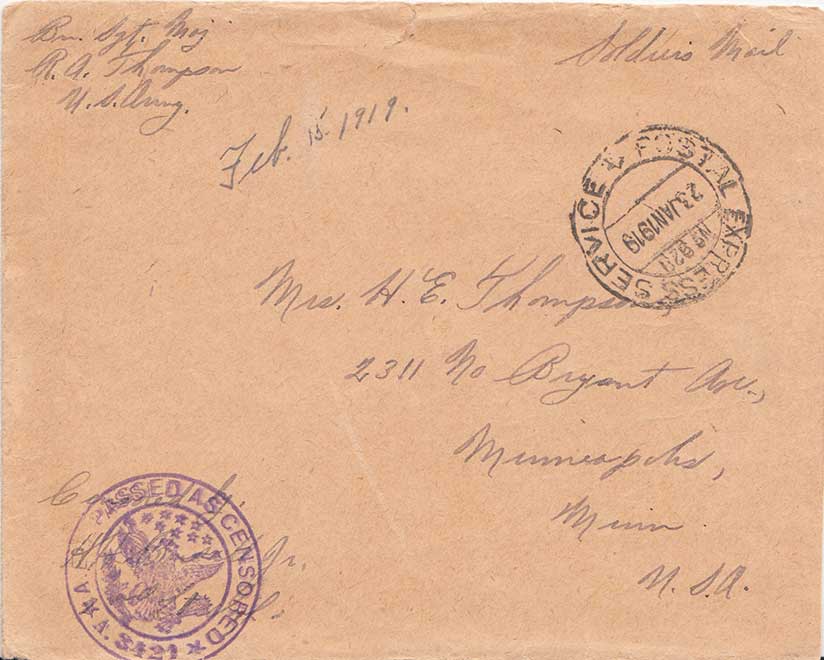 Bn. Sgt. Maj
R. A. Thompson
U.S. Army.
Soldiers Mail
Feb. 15. 1919.
POSTAL EXPRESS SERVICE
23 JAN 1919
Mrs. H. E. Thompson,
2311 No Bryant Ave.,
Minneapolis,
Minn
U.S.A.
PASSED AS CENSORED
Jr.